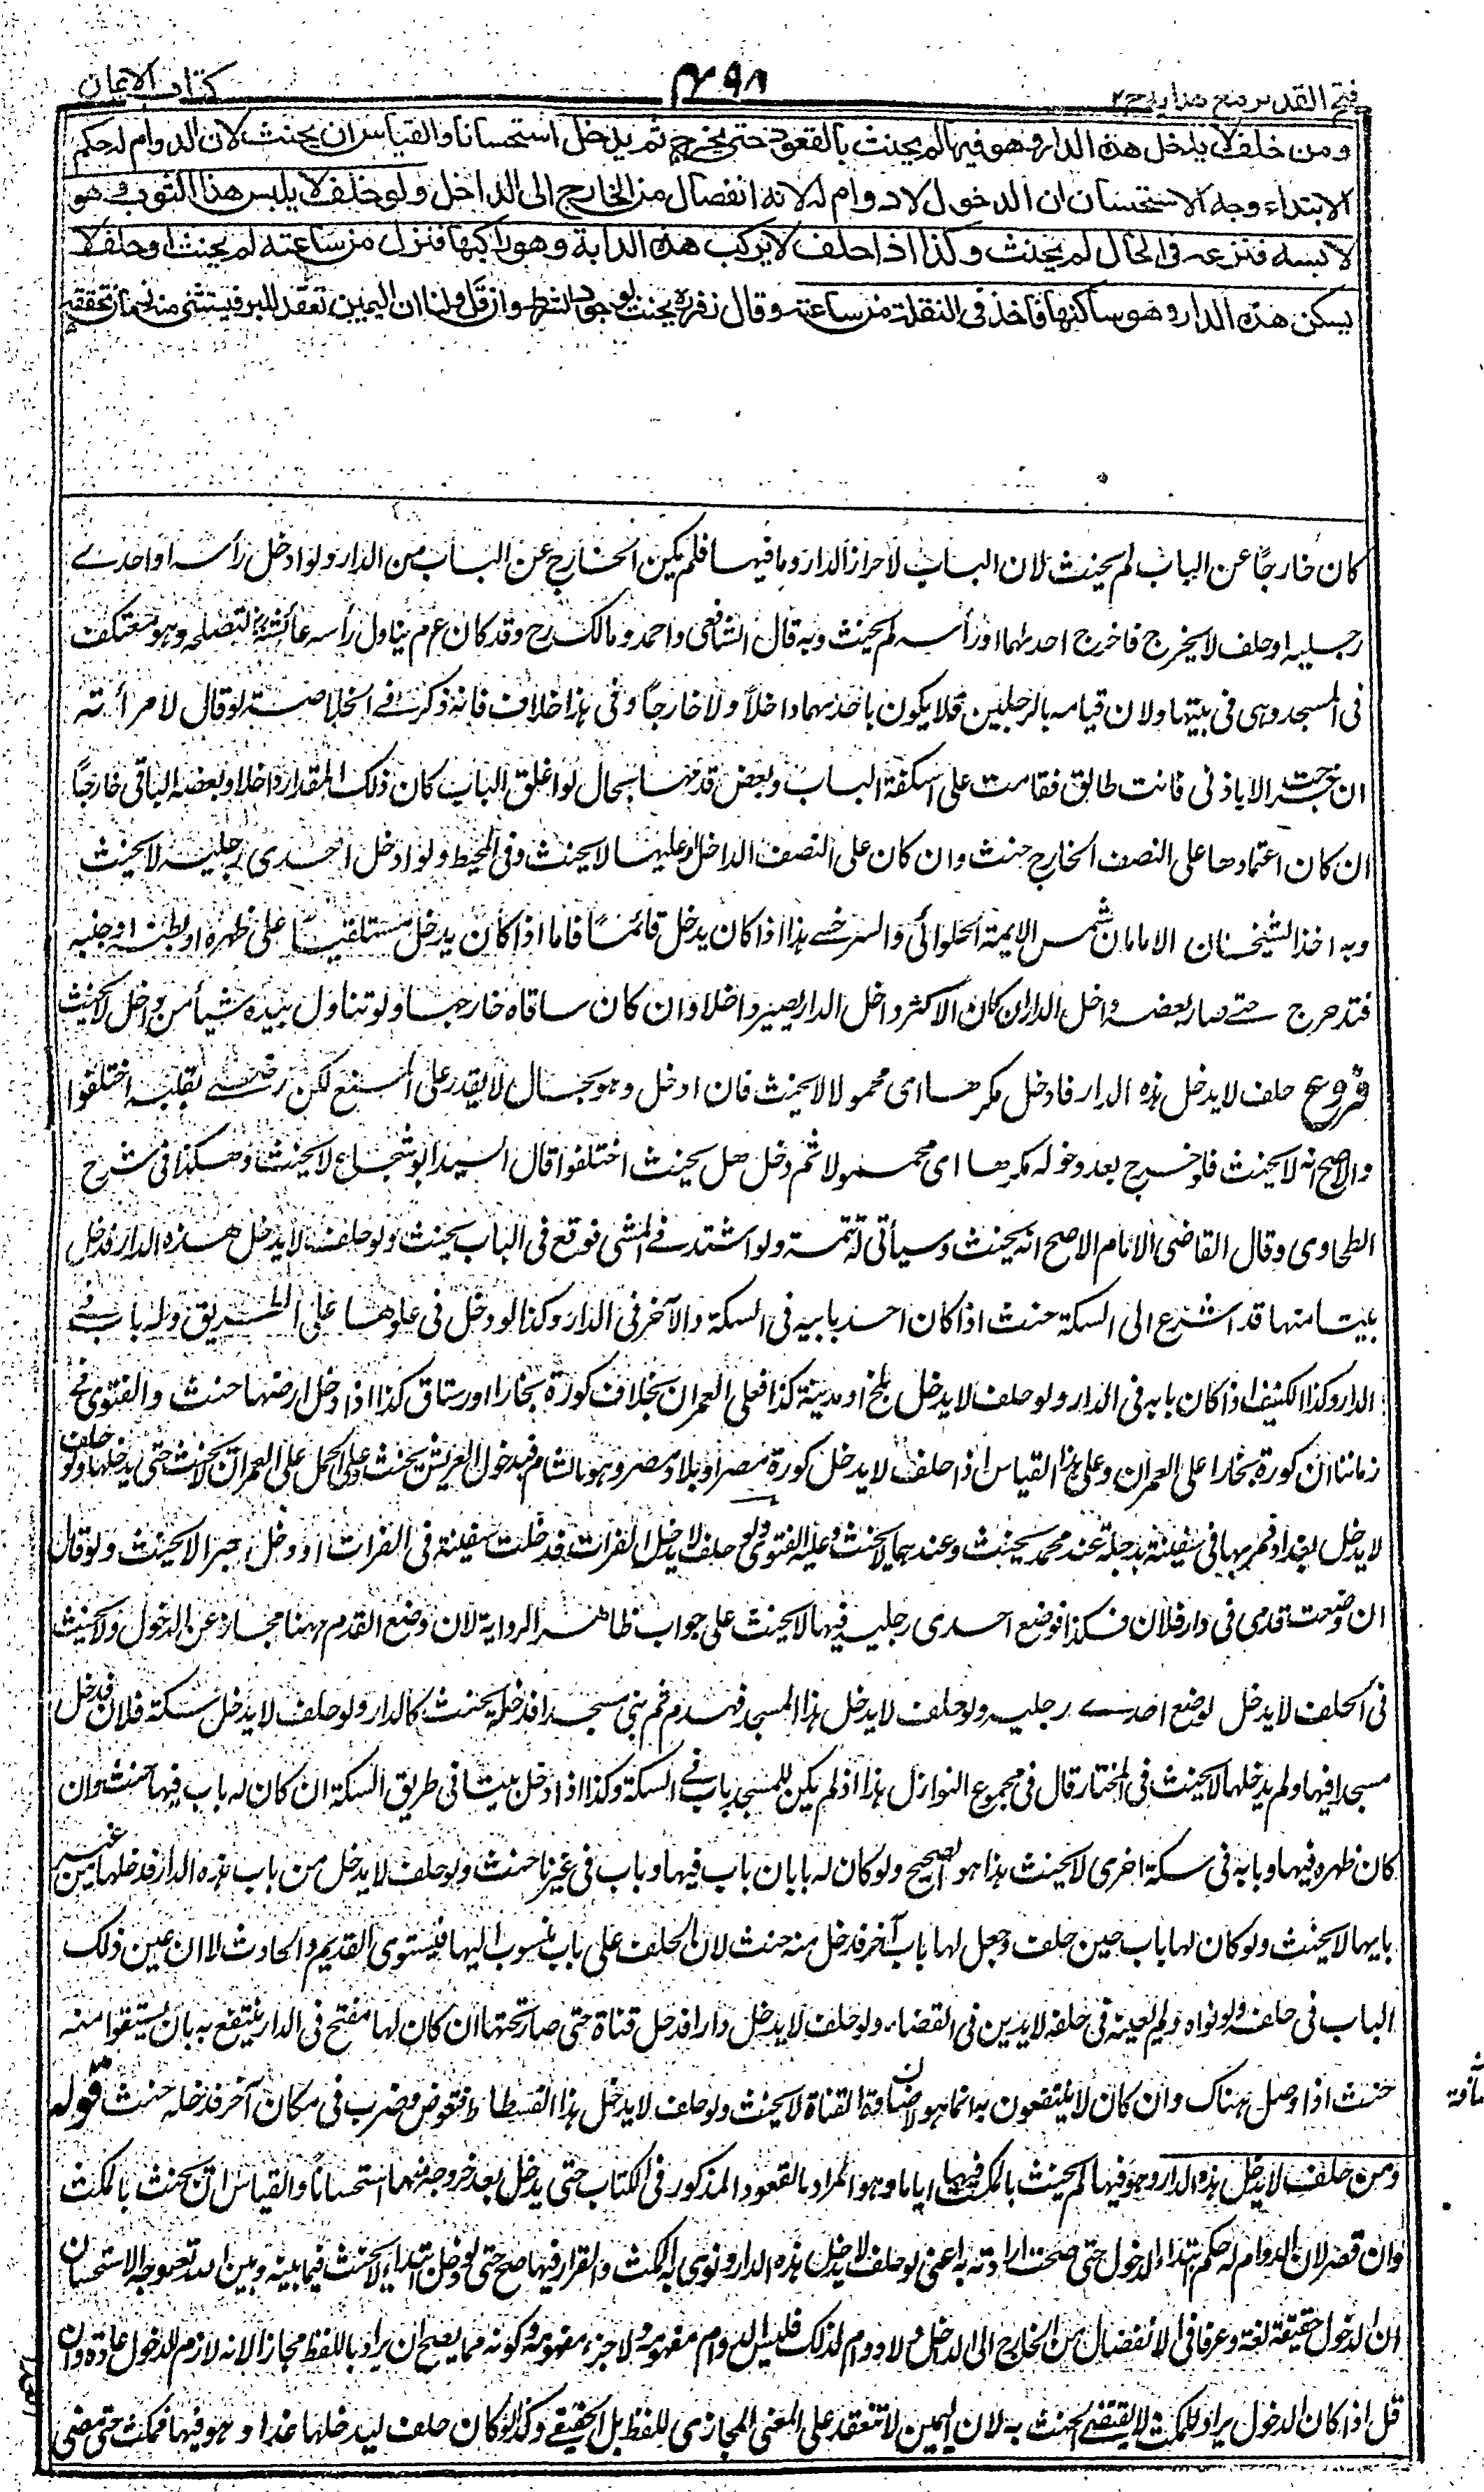 فتح القدير مع هداية ج ٢
٤٩٨
كتاب الايمان
ومن حلف لا يدخل هذه الدار وهو فيها لم يحنث بالقعود حتى يخرج ثم يدخل استحسانا والقياس ان يحنث لان الدوام له حكم
الابتداء وجه الاستحسان ان الدخول لا دوام له لانه انفصال من الخارج الى الداخل ولو حلف لا يلبس هذا الثوب وهو
لابسه فنزعه فى الحال لم يحنث وكذا اذا حلف لا يركب هذه الدابة وهو راكبها فنزل من ساعته لم يحنث او حلف لا
يسكن هذه الدار وهو ساكنها فاخذ فى النقلة من ساعته وقال زفر رح يحنث لوجود الشرط وان قل ولنا ان اليمين تعقد للبر فيستثنى منه زمان تحققه
كان خارجًا عن الباب لم يحنث لان الباب لاحراز الدار وما فيها فلم يكن الخارج عن الباب من الدار ولو ادخل رأسه او احدى
رجليه او حلف لا يخرج فاخرج احدٰهما او رأسه لم يحنث وبه قال الشافعى واحمد ومالك رح وقد كان عم يناول رأسه عائشة رض لتصلحه وهو معتكف
فى المسجد وهى فى بيتها ولان قيامه بالرجلين فلا يكون باحدٰهما داخلاً ولا خارجاً وفى هذا خلاف فانه ذكر فى الخلاصة لو قال لامرأته
ان خرجت الا باذنى فانت طالق فقامت على اسكفة الباب وبعض قدمها بحال لو اغلق الباب كان ذلك المقدار داخلا وبعضه الباقى خارجاً
ان كان اعتمادها على النصف الخارج حنث وان كان على النصف الداخل او عليهما لا يحنث وفى المحيط ولو ادخل احدى رجليه لا يحنث
وبه اخذ الشيخان الامامان شمس الايمة الحلوائى والسرخسى هذا اذا كان يدخل قائمًا فاما اذا كان يدخل مستلقيا على ظهره او بطنه او جنبه
فتدحرج حتى صار بعضه داخل الدار ان كان الاكثر داخل الدار يصير داخلا وان كان ساقاه خارجها ولو تناول بيده شيأ من داخل لا يحنث
فروع حلف لا يدخل هذه الدار فادخل مكرها اى محمولا لا يحنث فان ادخل وهو بحال لا يقدر على المنع لكن رضى بقلبه اختلفوا
والاصح انه لا يحنث فلو خرج بعد دخوله مكرها اى محمولا ثم دخل هل يحنث اختلفوا قال السيد ابو شجاع لا يحنث وهكذا فى شرح
الطحاوى وقال القاضى الامام الاصح انه يحنث وسيأتى له تتمة ولو اشتد فى المشى فوقع فى الباب يحنث ولو حلف لا يدخل هذه الدار فدخل
بيتا منها قد اشرع الى السكة حنث اذا كان احد بابيه فى السكة والآخر فى الدار وكذا لو دخل فى علوها على الطريق وله باب فى
الدار وكذا الكنيف اذا كان بابه فى الدار ولو حلف لا يدخل بلخ او مدينة كذا فعلى العمران بخلاف كورة بخارا او رستاق كذا اذا دخل ارضها حنث والفتوى فى
زماننا ان كورة بخارا على العمران وعلى هذا القياس اذا حلف لا يدخل كورة مصر او بلاد مصر وهو بالشام فبدخول العريش يحنث وعلى الحمل على العمران لا يحنث حتى يدخلها ولو حلف
لا يدخل بغداد فمر بها فى سفينة بدجلة عند محمد يحنث وعندهما لا يحنث وعليه الفتوى ولو حلف لا يدخل الفرات فدخلت سفينة فى الفرات او دخل جسرا لا يحنث ولو قال
ان وضعت قدمى فى دار فلان فكذا فوضع احدى رجليه فيها لا يحنث على جواب ظاهر الرواية لان وضع القدم ههنا مجاز عن الدخول ولا يحنث
فى الحلف لا يدخل لوضع احدى رجليه ولو حلف لا يدخل هذا المسجد فهدم ثم بنى مسجدا فدخله يحنث كالدار ولو حلف لا يدخل سكة فلان فدخل
مسجدا فيها ولم يدخلها لا يحنث فى المختار قال فى مجموع النوازل هذا اذا لم يكن للمسجد باب فى السكة وكذا اذا دخل بيتا فى طريق السكة ان كان له باب فيها حنث وان
كان ظهره فيها وبابه فى سكة اخرى لا يحنث هذا هو الصحيح ولو كان له بابان باب فيها وباب فى غيرها حنث ولو حلف لا يدخل من باب هذه الدار فدخلها من غير
بابها لا يحنث ولو كان لها باب حين حلف وجعل لها باب آخر فدخل منه حنث لان الحلف على باب منسوب اليها فيستوى القديم والحادث الا ان عين ذلك
الباب فى حلفه ولو نواه ولم يعينه فى حلفه لا يدين فى القضاء ولو حلف لا يدخل دارا فدخل قناة حتى صار تحتها ان كان لها مفتح فى الدار ينتفع به بان يستقوا منه
حنث اذا وصل هناك وان كان لا ينتفعون به انما هو لاضاءة القناة لا يحنث ولو حلف لا يدخل هذا الفسطاط فقوض وضرب فى مكان آخر فدخله حنث قوله
ومن حلف لا يدخل هذه الدار وهو فيها لم يحنث بالمكث فيها اياما وهو المراد بالقعود المذكور فى الكتاب حتى يدخل بعد خروجه منها استحسانًا والقياس ان يحنث بالمكث
وان قصر لان الدوام له حكم ابتداء الدخول حتى صحت ارادته به اعنى لو حلف لا يدخل هذه الدار ونوى به المكث والقرار فيها صح حتى لو دخل ابتداء لا يحنث فيما بينه وبين الله تعالى وجه الاستحسان
ان الدخول حقيقة لغة وعرفا فى الانفصال من الخارج الى الداخل ولا دوام لذلك فليس الدوام مفهومه ولا جزء مفهومه وكونه مما يصح ان يراد باللفظ مجازا لانه لازم الدخول عادة وان
قل اذا كان الدخول يراد للمكث لا يقتضى الحنث به لان اليمين لا تنعقد على المعنى المجازى للفظ بل الحقيقى وكذا لو كان حلف ليدخلها غدا وهو فيها فمكث حتى مضى